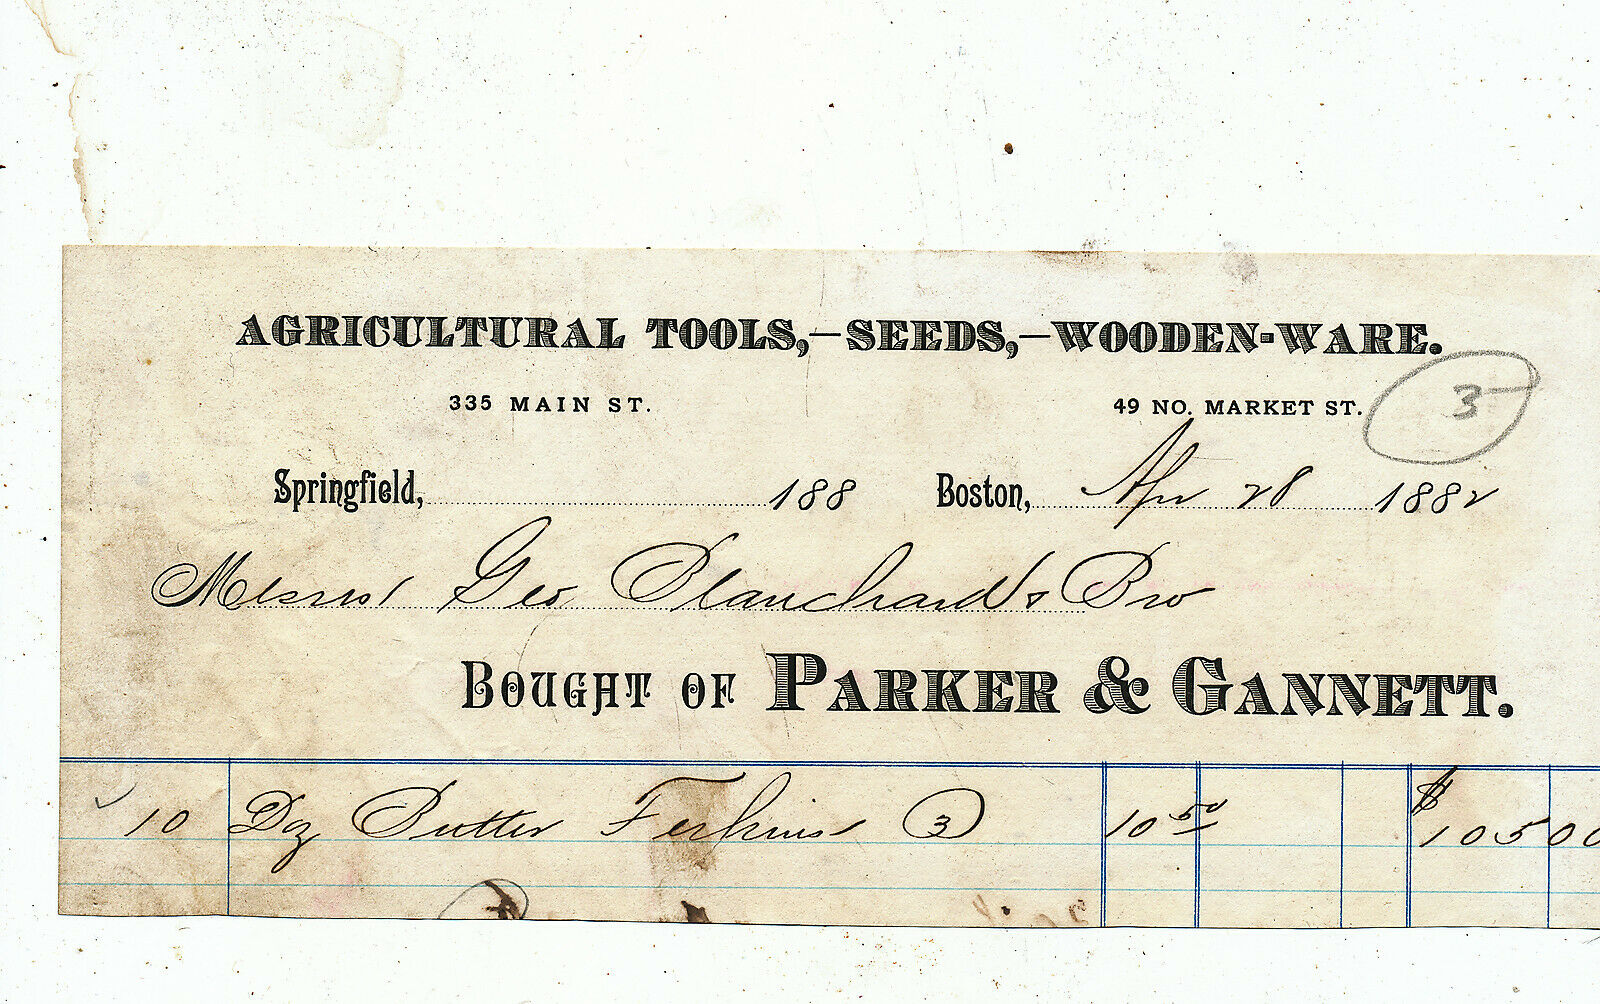 AGRICULTURAL TOOLS,—SEEDS,—WOODEN-WARE.
335 MAIN ST. 49 NO. MARKET ST. 3
Springfield, 188 Boston, Apr 28 1882
Messrs Geo Blanchard & Bro
BOUGHT OF PARKER & GANNETT.
10 Doz Butter Ferkins 3 10 50 $ 105 00